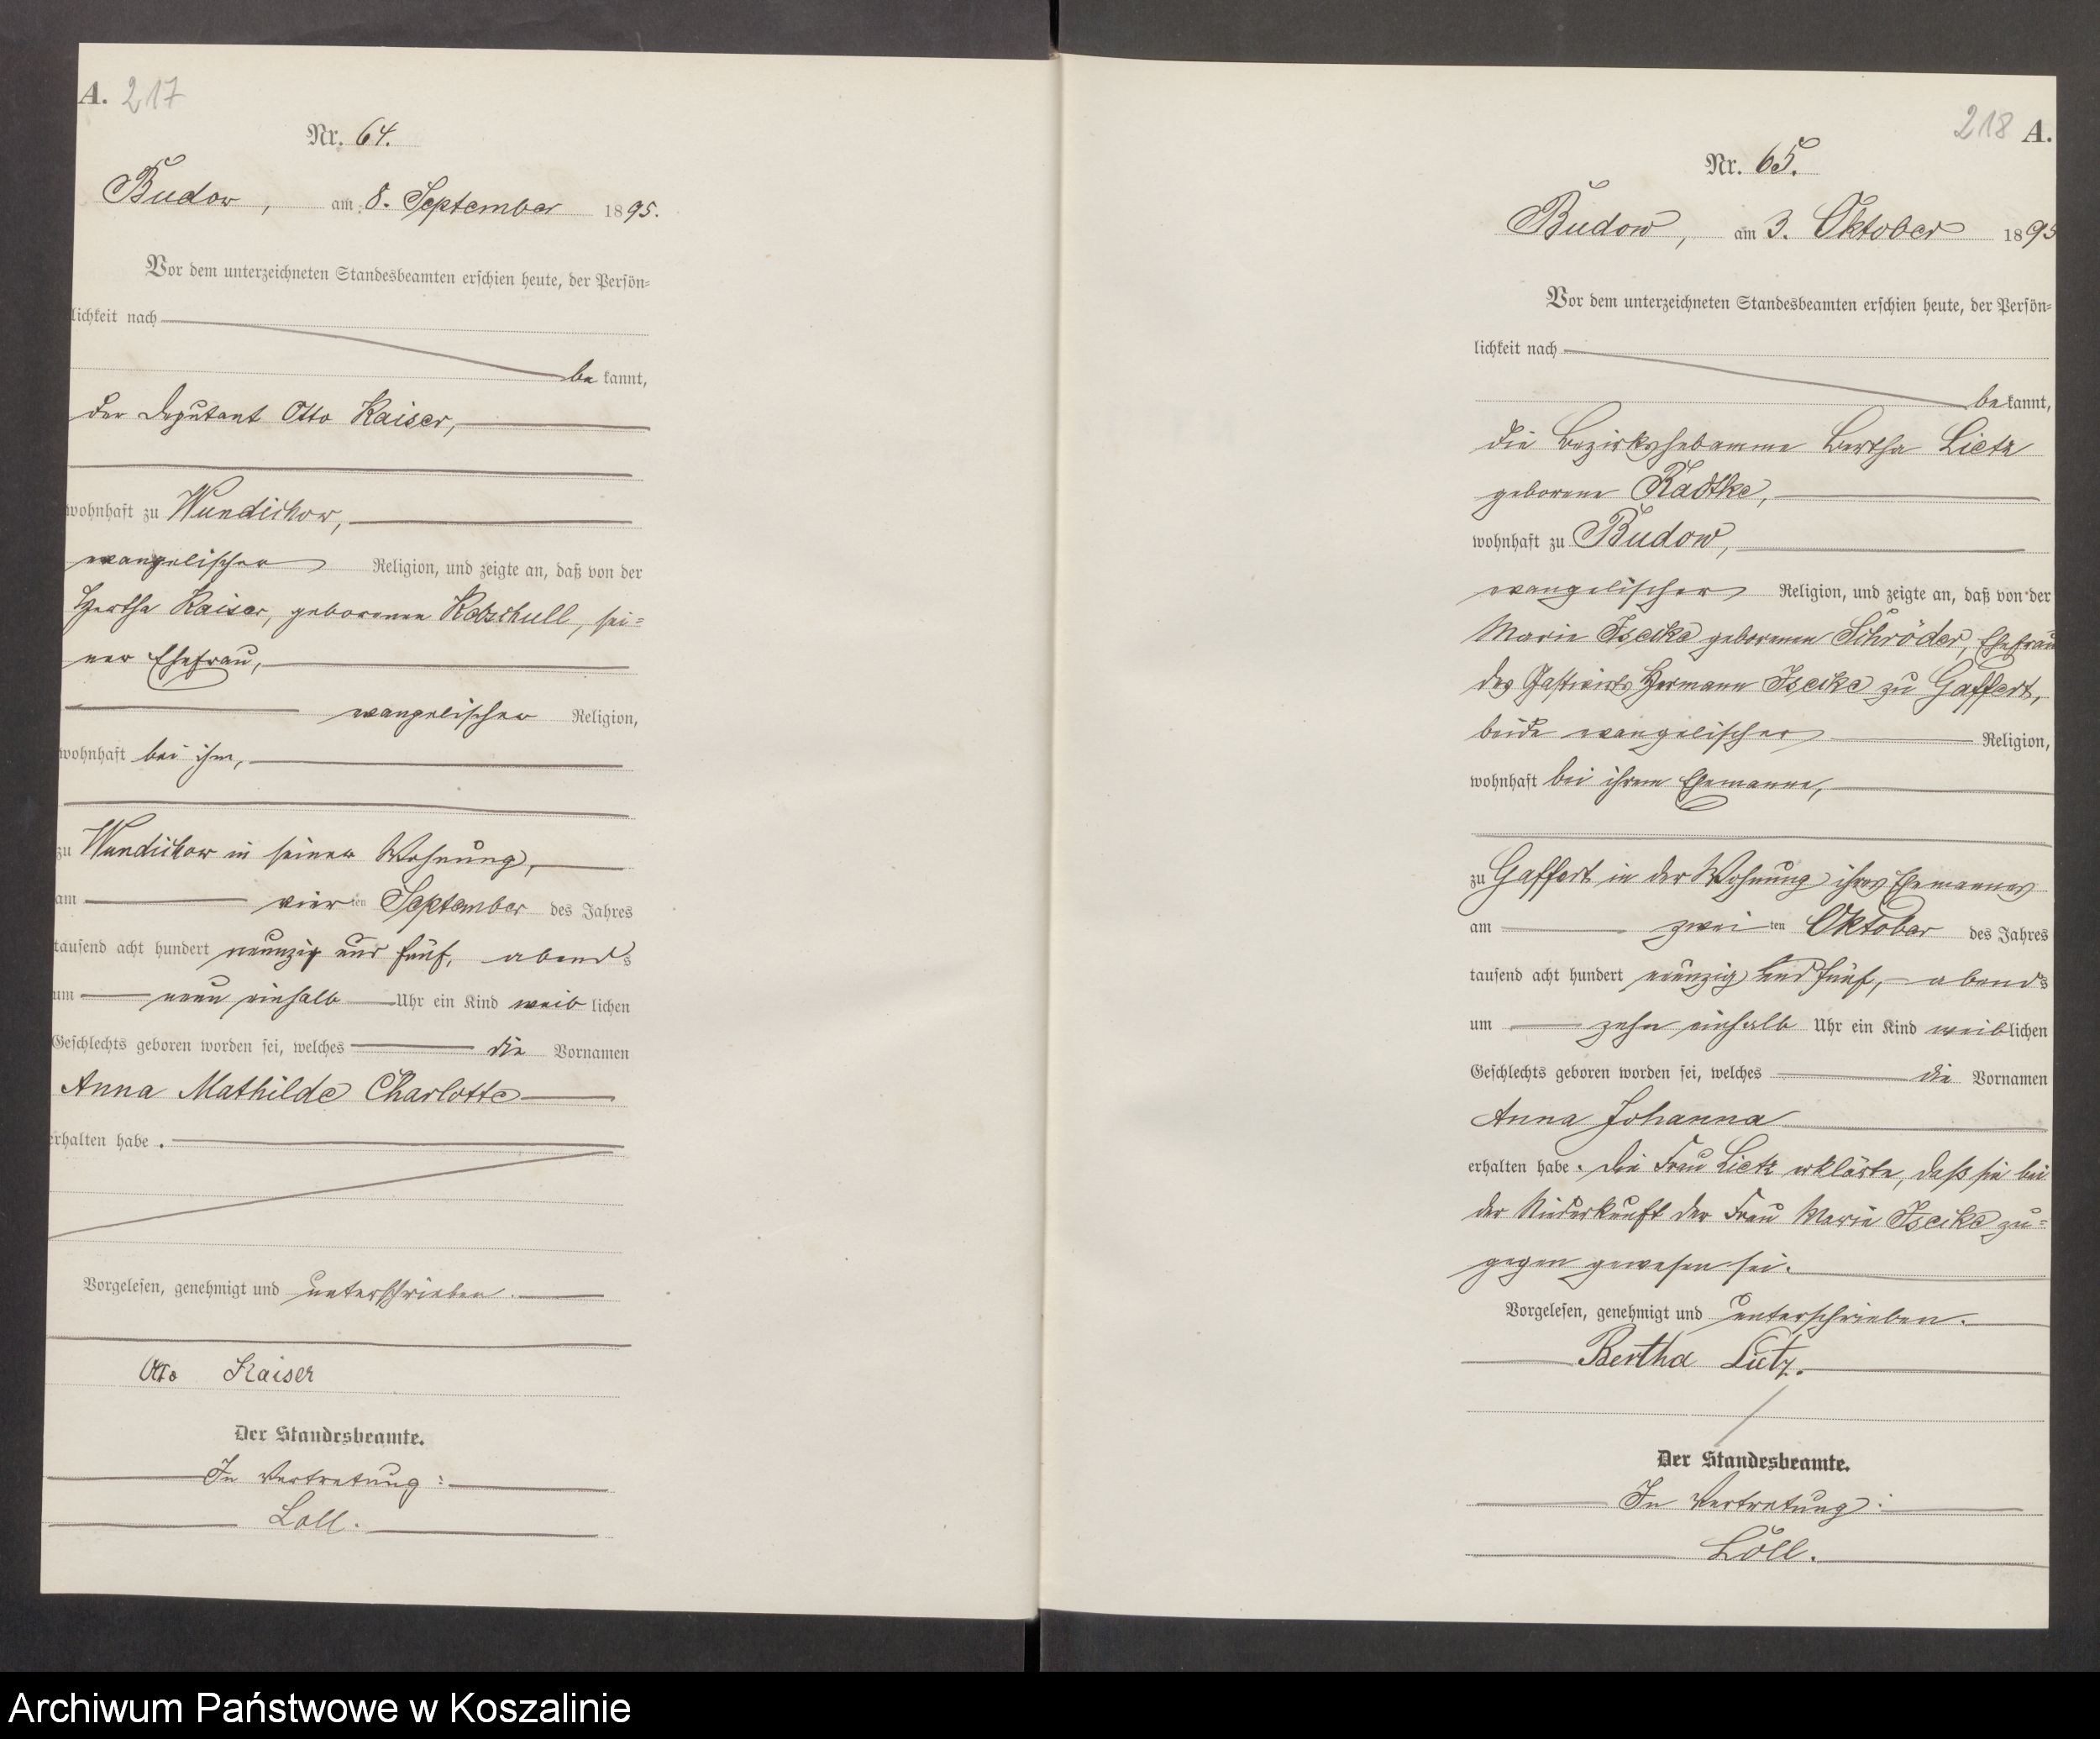 A. 217
Nr. 64.
Budow, am 8. September 1895.
Vor dem unterzeichneten Standesbeamten erschien heute, der Persön=
lichkeit nach
be kannt,
der Deputant Otto Kaiser,
wohnhaft zu Wundichow,
evangelischer Religion, und zeigte an, daß von der
Hertha Kaiser, geborenen Kotschull, sei=
ner Ehefrau,
evangelischer Religion,
wohnhaft bei ihm,
zu Wundichow in seiner Wohnung,
am vier ten September des Jahres
tausend acht hundert neunzig und fünf, abends
um neun einhalb Uhr ein Kind weib lichen
Geschlechts geboren worden sei, welches die Vornamen
Anna Mathilde Charlotte
erhalten habe.
Vorgelesen, genehmigt und unterschrieben.
Otto Kaiser
Der Standesbeamte.
In Vertretung:
Löll.
218 A.
Nr. 65.
Budow, am 3. Oktober 1895
Vor dem unterzeichneten Standesbeamten erschien heute, der Persön=
lichkeit nach
be kannt,
die Bezirkshebamme Bertha Lietz
geborene Radtke,
wohnhaft zu Budow,
evangelischer Religion, und zeigte an, daß von der
Marie Iseike geborenen Schröder, Ehefrau
des Gastwirts Hermann Iseike zu Gaffert,
beide evangelischer Religion,
wohnhaft bei ihrem Ehemanne,
zu Gaffert in der Wohnung ihres Ehemannes
am zwei ten Oktober des Jahres
tausend acht hundert neunzig und fünf, abends
um zehn einhalb Uhr ein Kind weiblichen
Geschlechts geboren worden sei, welches die Vornamen
Anna Johanna
erhalten habe. Die Frau Lietz erklärte, daß sie bei
der Niederkunft der Frau Marie Iseike zu=
gegen gewesen sei.
Vorgelesen, genehmigt und unterschrieben.
Bertha Lietz.
Der Standesbeamte.
In Vertretung:
Löll.
Archiwum Państwowe w Koszalinie